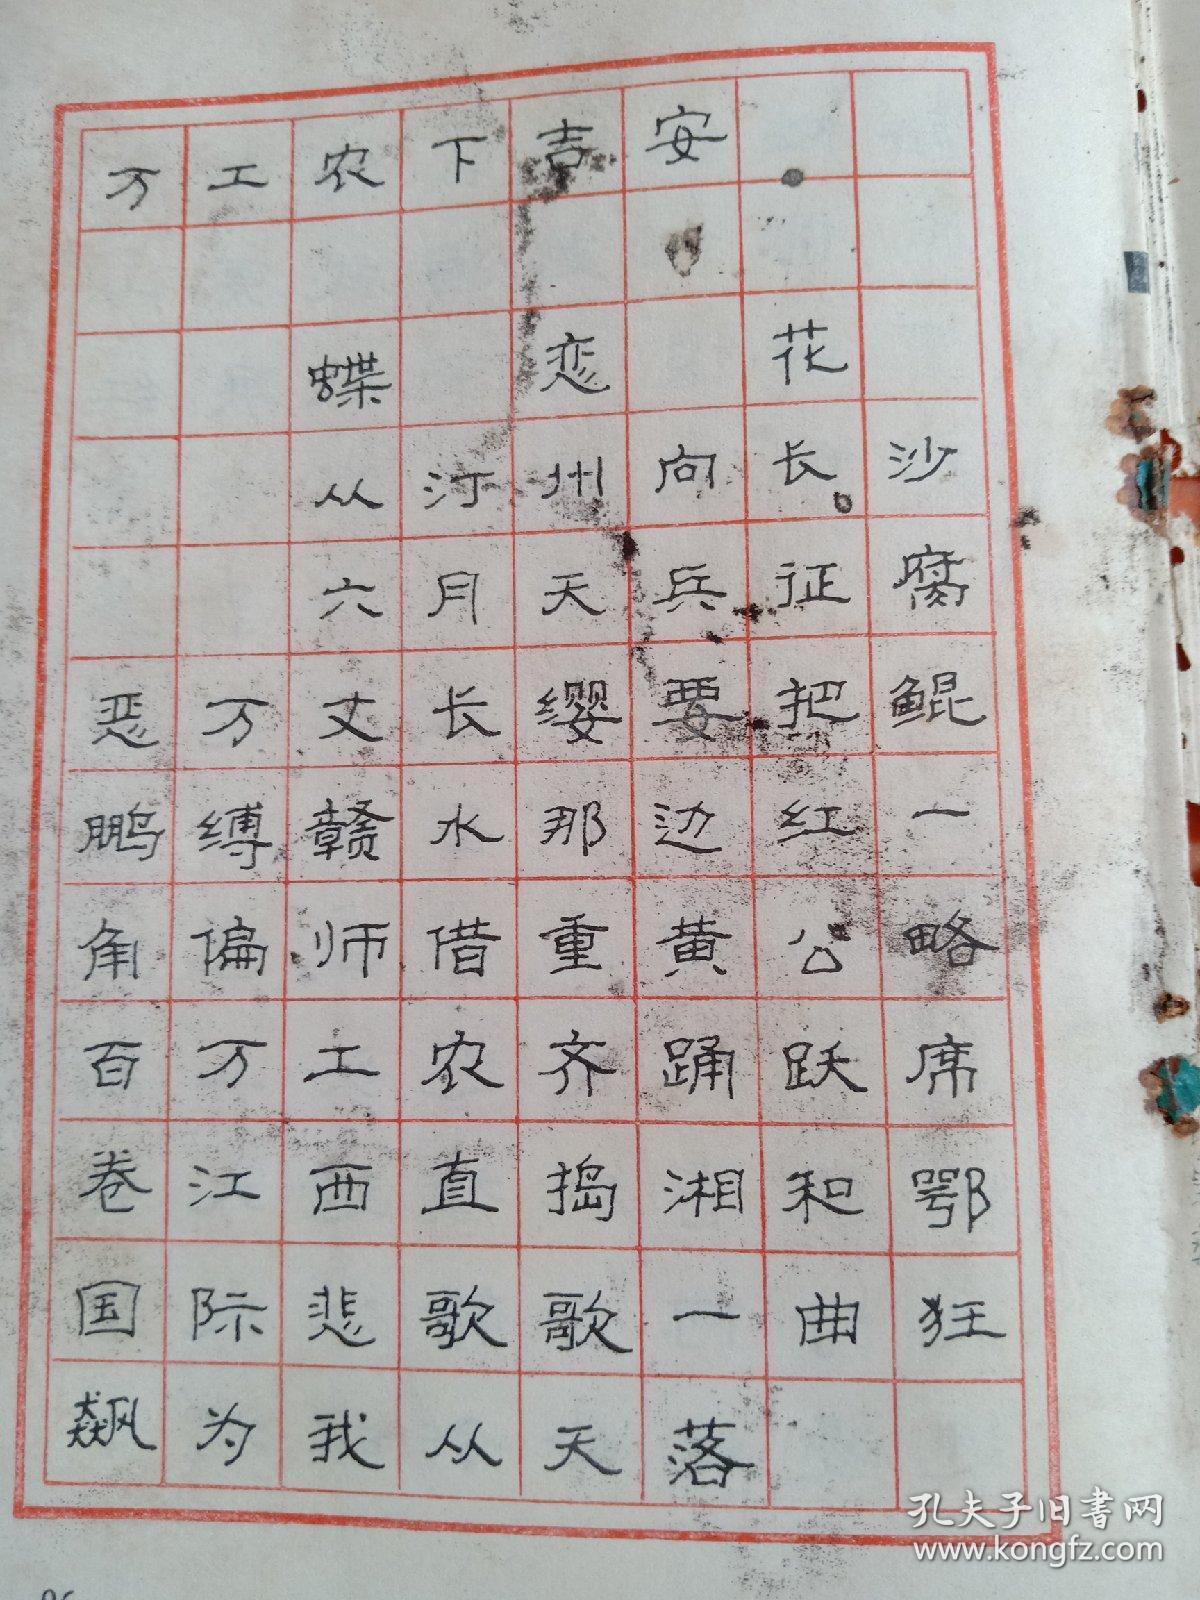 万工农下吉安
蝶恋花
从汀州向长沙
六月天兵征腐
恶万丈长缨要把鲲
鹏缚赣水那边红一
角偏师借重黄公略
百万工农齐踊跃席
卷江西直捣湘和鄂
国际悲歌歌一曲狂
飙为我从天落
孔夫子旧书网
www.kongfz.com